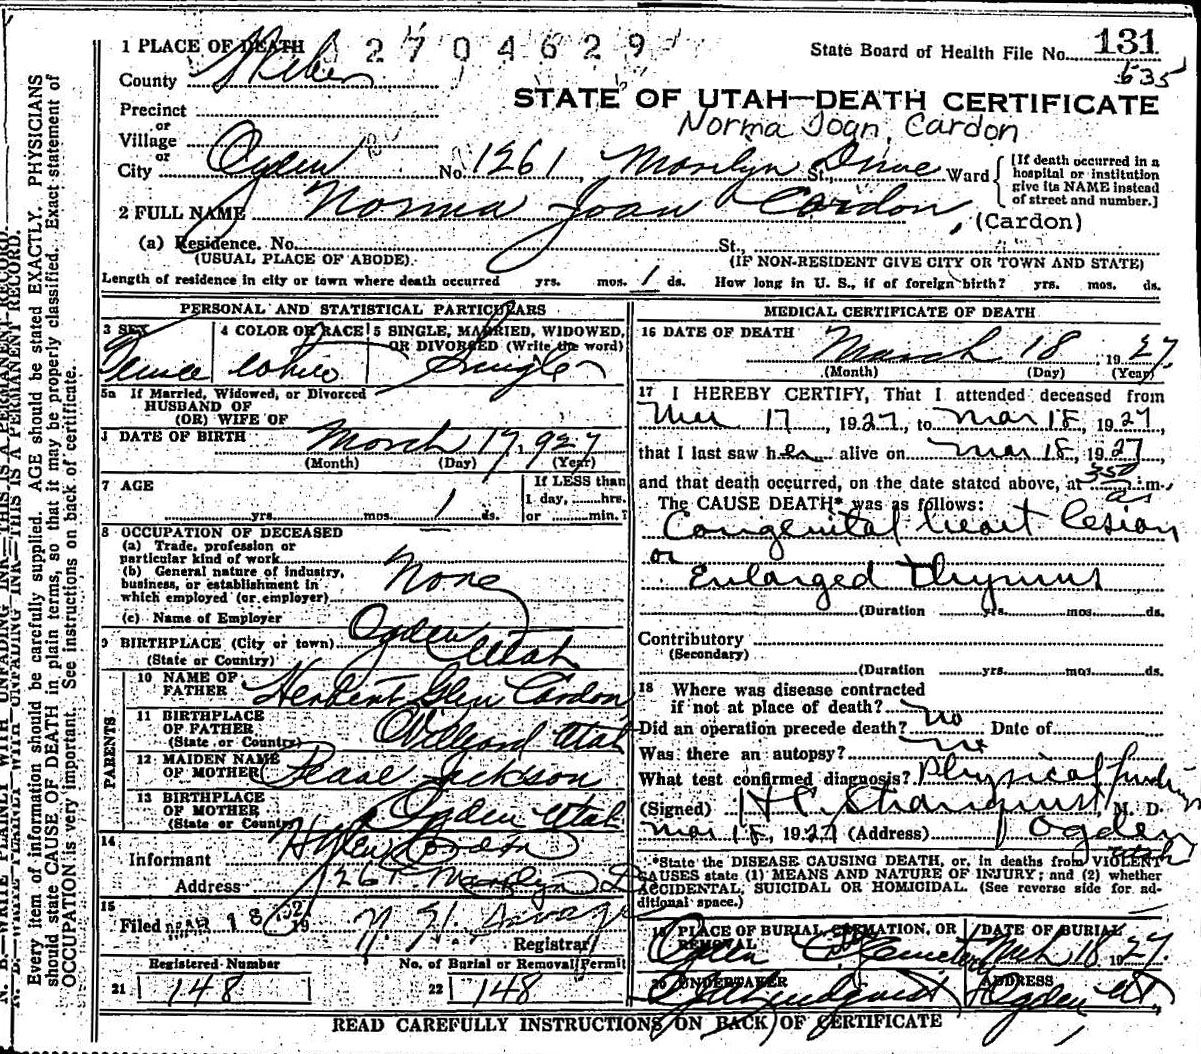 1 PLACE OF DEATH 2704629 State Board of Health File No. 131
County Weber 535
STATE OF UTAH—DEATH CERTIFICATE
Precinct
Norma Joan Cardon
or
Village
or
City Ogden No. 1261, Marilyn Drive St., Ward [If death occurred in a hospital or institution give its NAME instead of street and number.]
2 FULL NAME Norma Joan Cardon, (Cardon)
(a) Residence. No. St.,
(USUAL PLACE OF ABODE) (IF NON-RESIDENT GIVE CITY OR TOWN AND STATE)
Length of residence in city or town where death occurred yrs. mos. 1 ds. How long in U. S., if of foreign birth? yrs. mos. ds.
PERSONAL AND STATISTICAL PARTICULARS
3 SEX 4 COLOR OR RACE 5 SINGLE, MARRIED, WIDOWED, OR DIVORCED (Write the word)
Female White Single
5a If Married, Widowed, or Divorced
HUSBAND OF
(OR) WIFE OF
DATE OF BIRTH March 17, 927
(Month) (Day) (Year)
7 AGE If LESS than
1 day, hrs.
yrs. mos. 1 ds. or min.?
8 OCCUPATION OF DECEASED
(a) Trade, profession or
particular kind of work None
(b) General nature of industry,
business, or establishment in
which employed (or employer)
(c) Name of Employer
9 BIRTHPLACE (City or town) Ogden
(State or Country) Utah
PARENTS
10 NAME OF FATHER Herbert Glen Cardon
11 BIRTHPLACE OF FATHER
(State or Country) Willard Utah
12 MAIDEN NAME OF MOTHER Pearl Jackson
13 BIRTHPLACE OF MOTHER
(State or Country) Ogden Utah
14
Informant H Glen Cardon
Address 1261 Marilyn D
15
Filed MAR 18 1927
Registrar
Registered Number No. of Burial or Removal Permit
21 148 22 148
MEDICAL CERTIFICATE OF DEATH
16 DATE OF DEATH March 18, 1927
(Month) (Day) (Year)
17 I HEREBY CERTIFY, That I attended deceased from
Mar 17, 1927, to Mar 18, 1927,
that I last saw her alive on Mar 18, 1927
and that death occurred, on the date stated above, at 350 a.m.
The CAUSE DEATH* was as follows:
Congenital heart lesion
or
Enlarged Thymus
(Duration yrs. mos. ds.
Contributory
(Secondary)
(Duration yrs. mos. ds.
18 Where was disease contracted
if not at place of death?
Did an operation precede death? no Date of
Was there an autopsy? no
What test confirmed diagnosis? Physical findings
(Signed) H C Stranquist, M. D.
Mar 18, 1927 (Address) Ogden
Utah
*State the DISEASE CAUSING DEATH, or, in deaths from VIOLENT
CAUSES state (1) MEANS AND NATURE OF INJURY; and (2) whether
ACCIDENTAL, SUICIDAL OR HOMICIDAL. (See reverse side for ad-
ditional space.)
19 PLACE OF BURIAL, CREMATION, OR REMOVAL DATE OF BURIAL
Ogden City Cemetery Mch 18 1927
20 UNDERTAKER ADDRESS
Lindquist Ogden Ut
READ CAREFULLY INSTRUCTIONS ON BACK OF CERTIFICATE
N. B.—WRITE PLAINLY WITH UNFADING INK—THIS IS A PERMANENT RECORD.
Every item of information should be carefully supplied. AGE should be stated EXACTLY. PHYSICIANS
should state CAUSE OF DEATH in plain terms, so that it may be properly classified. Exact statement of
OCCUPATION is very important. See instructions on back of certificate.